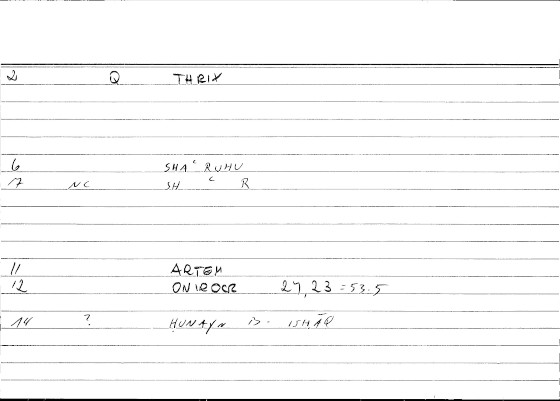 2 Q THRIX
6 SHAʿRUHU
17 NC SH ʿ R
11 ARTEM
12 ONIROCR 27,23 = 53.5
14 ? HUNAYN B. ISHĀQ